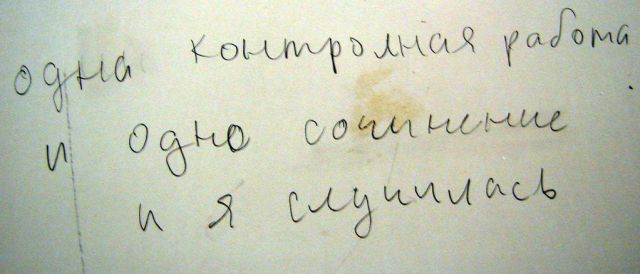 одна контролная работа
и одно сочинение
и я случилась